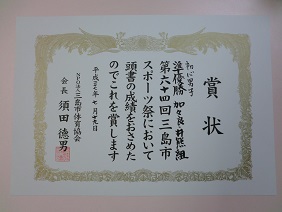 賞状
初心男子
準優勝 加々良・井熊組
第六十四回三島市
スポーツ祭において
頭書の成績をおさめた
のでこれを賞します
平成二十二年七月十九日
NPO法人三島市体育協会
会長 須田徳男